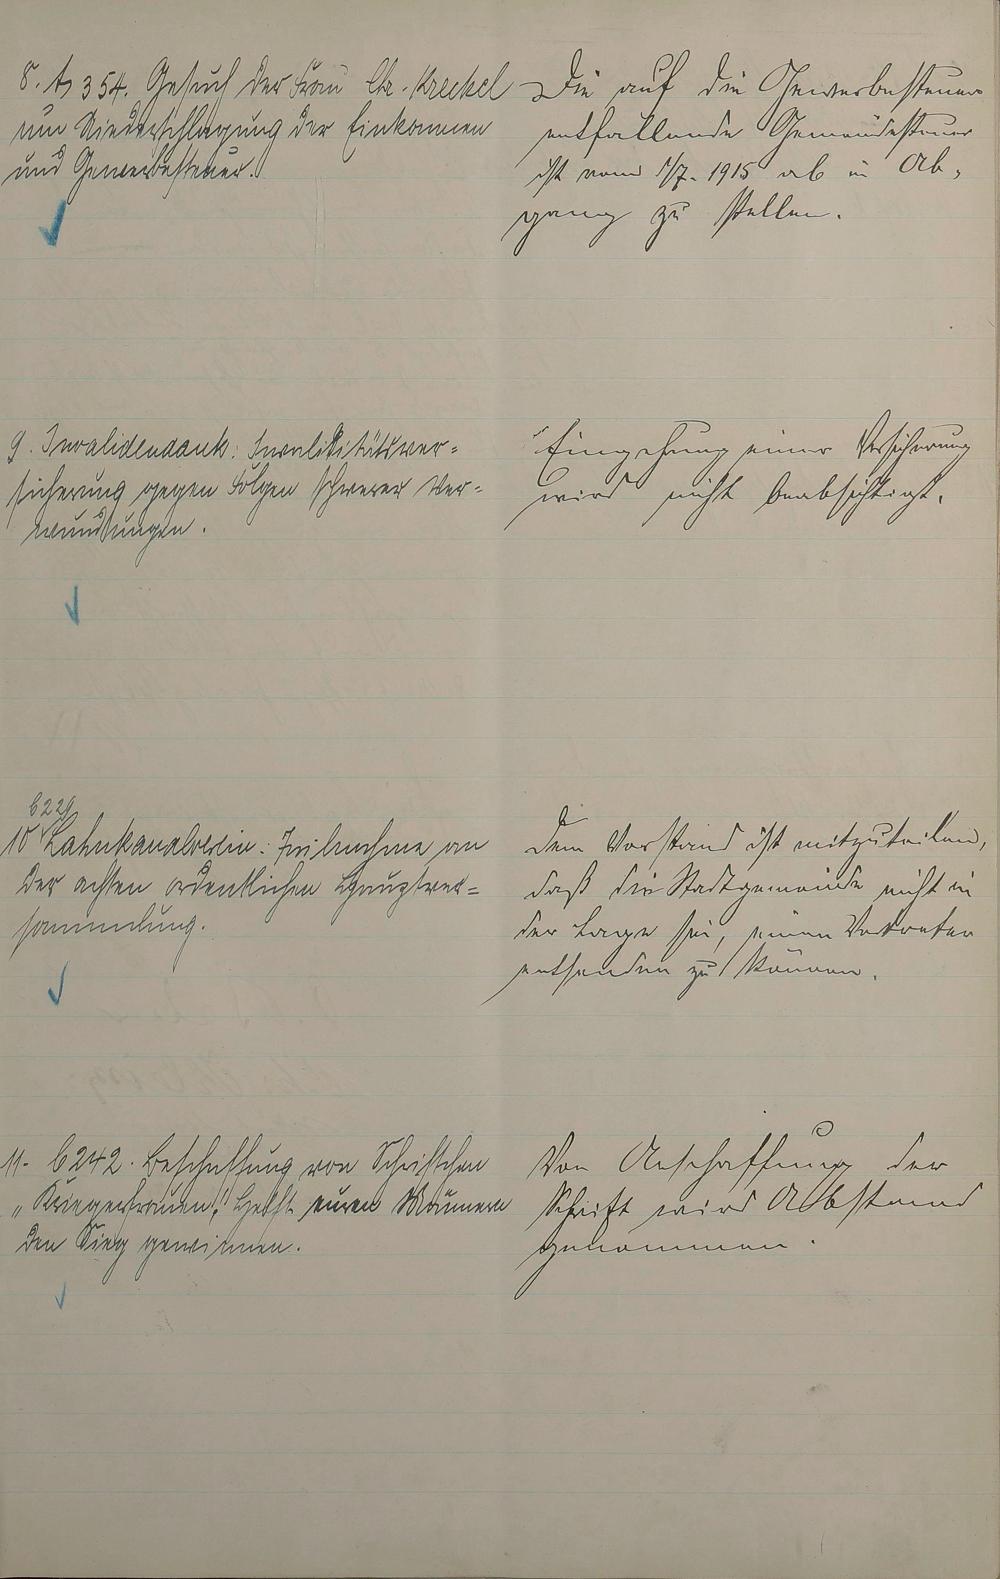 8. A 354. Gesuch der Frau Chr. Kreckel
um Niederschlagung der Einkommen
und Gewerbesteuer.
Die auf die Gewerbesteuer
entfallende Gemeindesteuer
ist vom 1/7. 1915 ab in Ab-
gang zu stellen.
9. Invalidendank: Invaliditätsver=
sicherung gegen Folgen schwerer Ver=
wundungen.
Eingehung einer Versicherung
wird nicht beabsichtigt.
6229
10 Lahnkanalverein: Teilnehme an
der achten ordentlichen Hauptver=
sammlung.
Dem Vorstand ist mitzuteilen,
daß die Stadtgemeinde nicht in
der Lage sei, einen Vertreter
entsenden zu können.
11. 6242. Beschaffung von Schriftchen
„Kriegerfrauen! Helft euren Männern
den Sieg gewinnen.
Von Anschaffung der
Schrift wird Abstand
genommen.